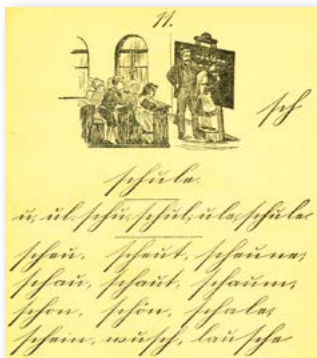 11.
sch
schule.
u, ul, schu, schul, ule, schule,
scheu, scheut, scheune,
schau, schaut, schaum,
schon, schön, schale,
schein, wusch, lausche